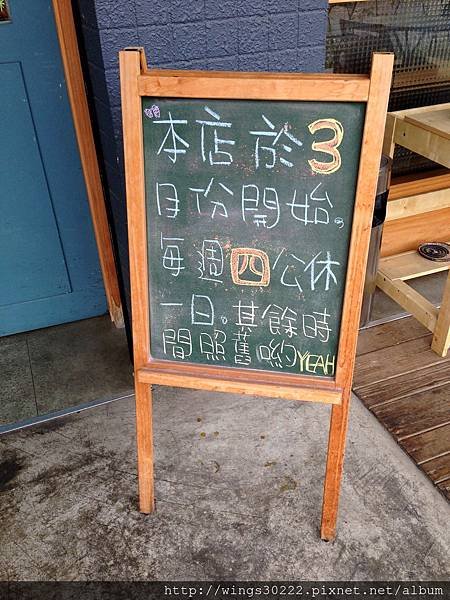 本店於3
月份開始。
每週四公休
一日。其餘時
間照舊喲YEAH
http://wings30222.pixnet.net/album